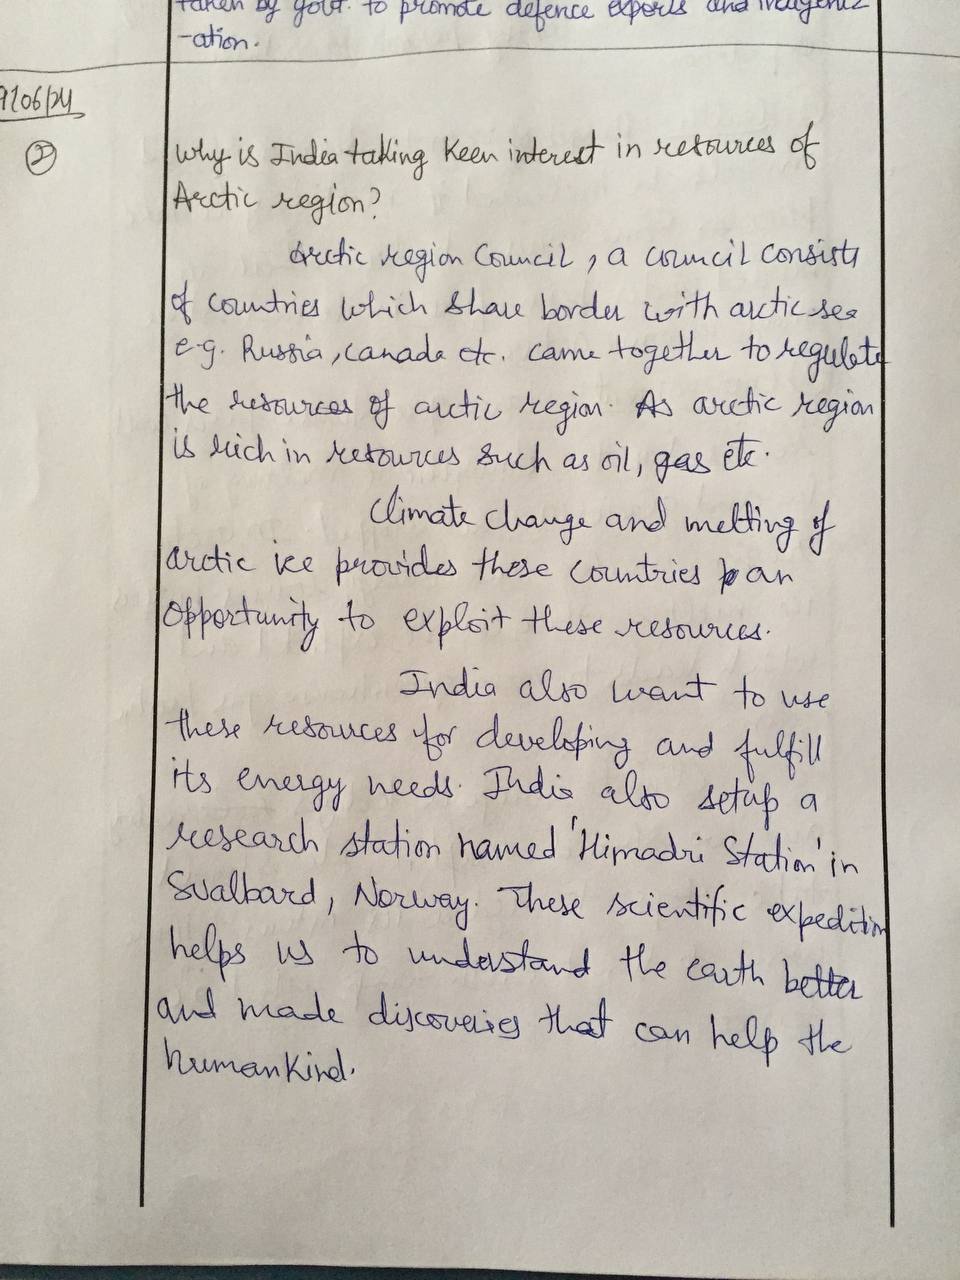 taken by govt. to promote defence exports and indigeniz
-ation.
9/06/24
②
Why is India taking keen interest in resources of
Arctic region?
Arctic region Council, a council consists
of countries which share border with arctic sea
e.g. Russia, canada etc. came together to regulate
the resources of arctic region. As arctic region
is rich in resources such as oil, gas etc.
Climate change and melting of
arctic ice provides these countries an
opportunity to exploit these resources.
India also want to use
these resources for developing and fulfill
its energy needs. India also setup a
research station named 'Himadri Station' in
Svalbard, Norway. These scientific expedition
helps us to understand the earth better
and made discoveries that can help the
humankind.